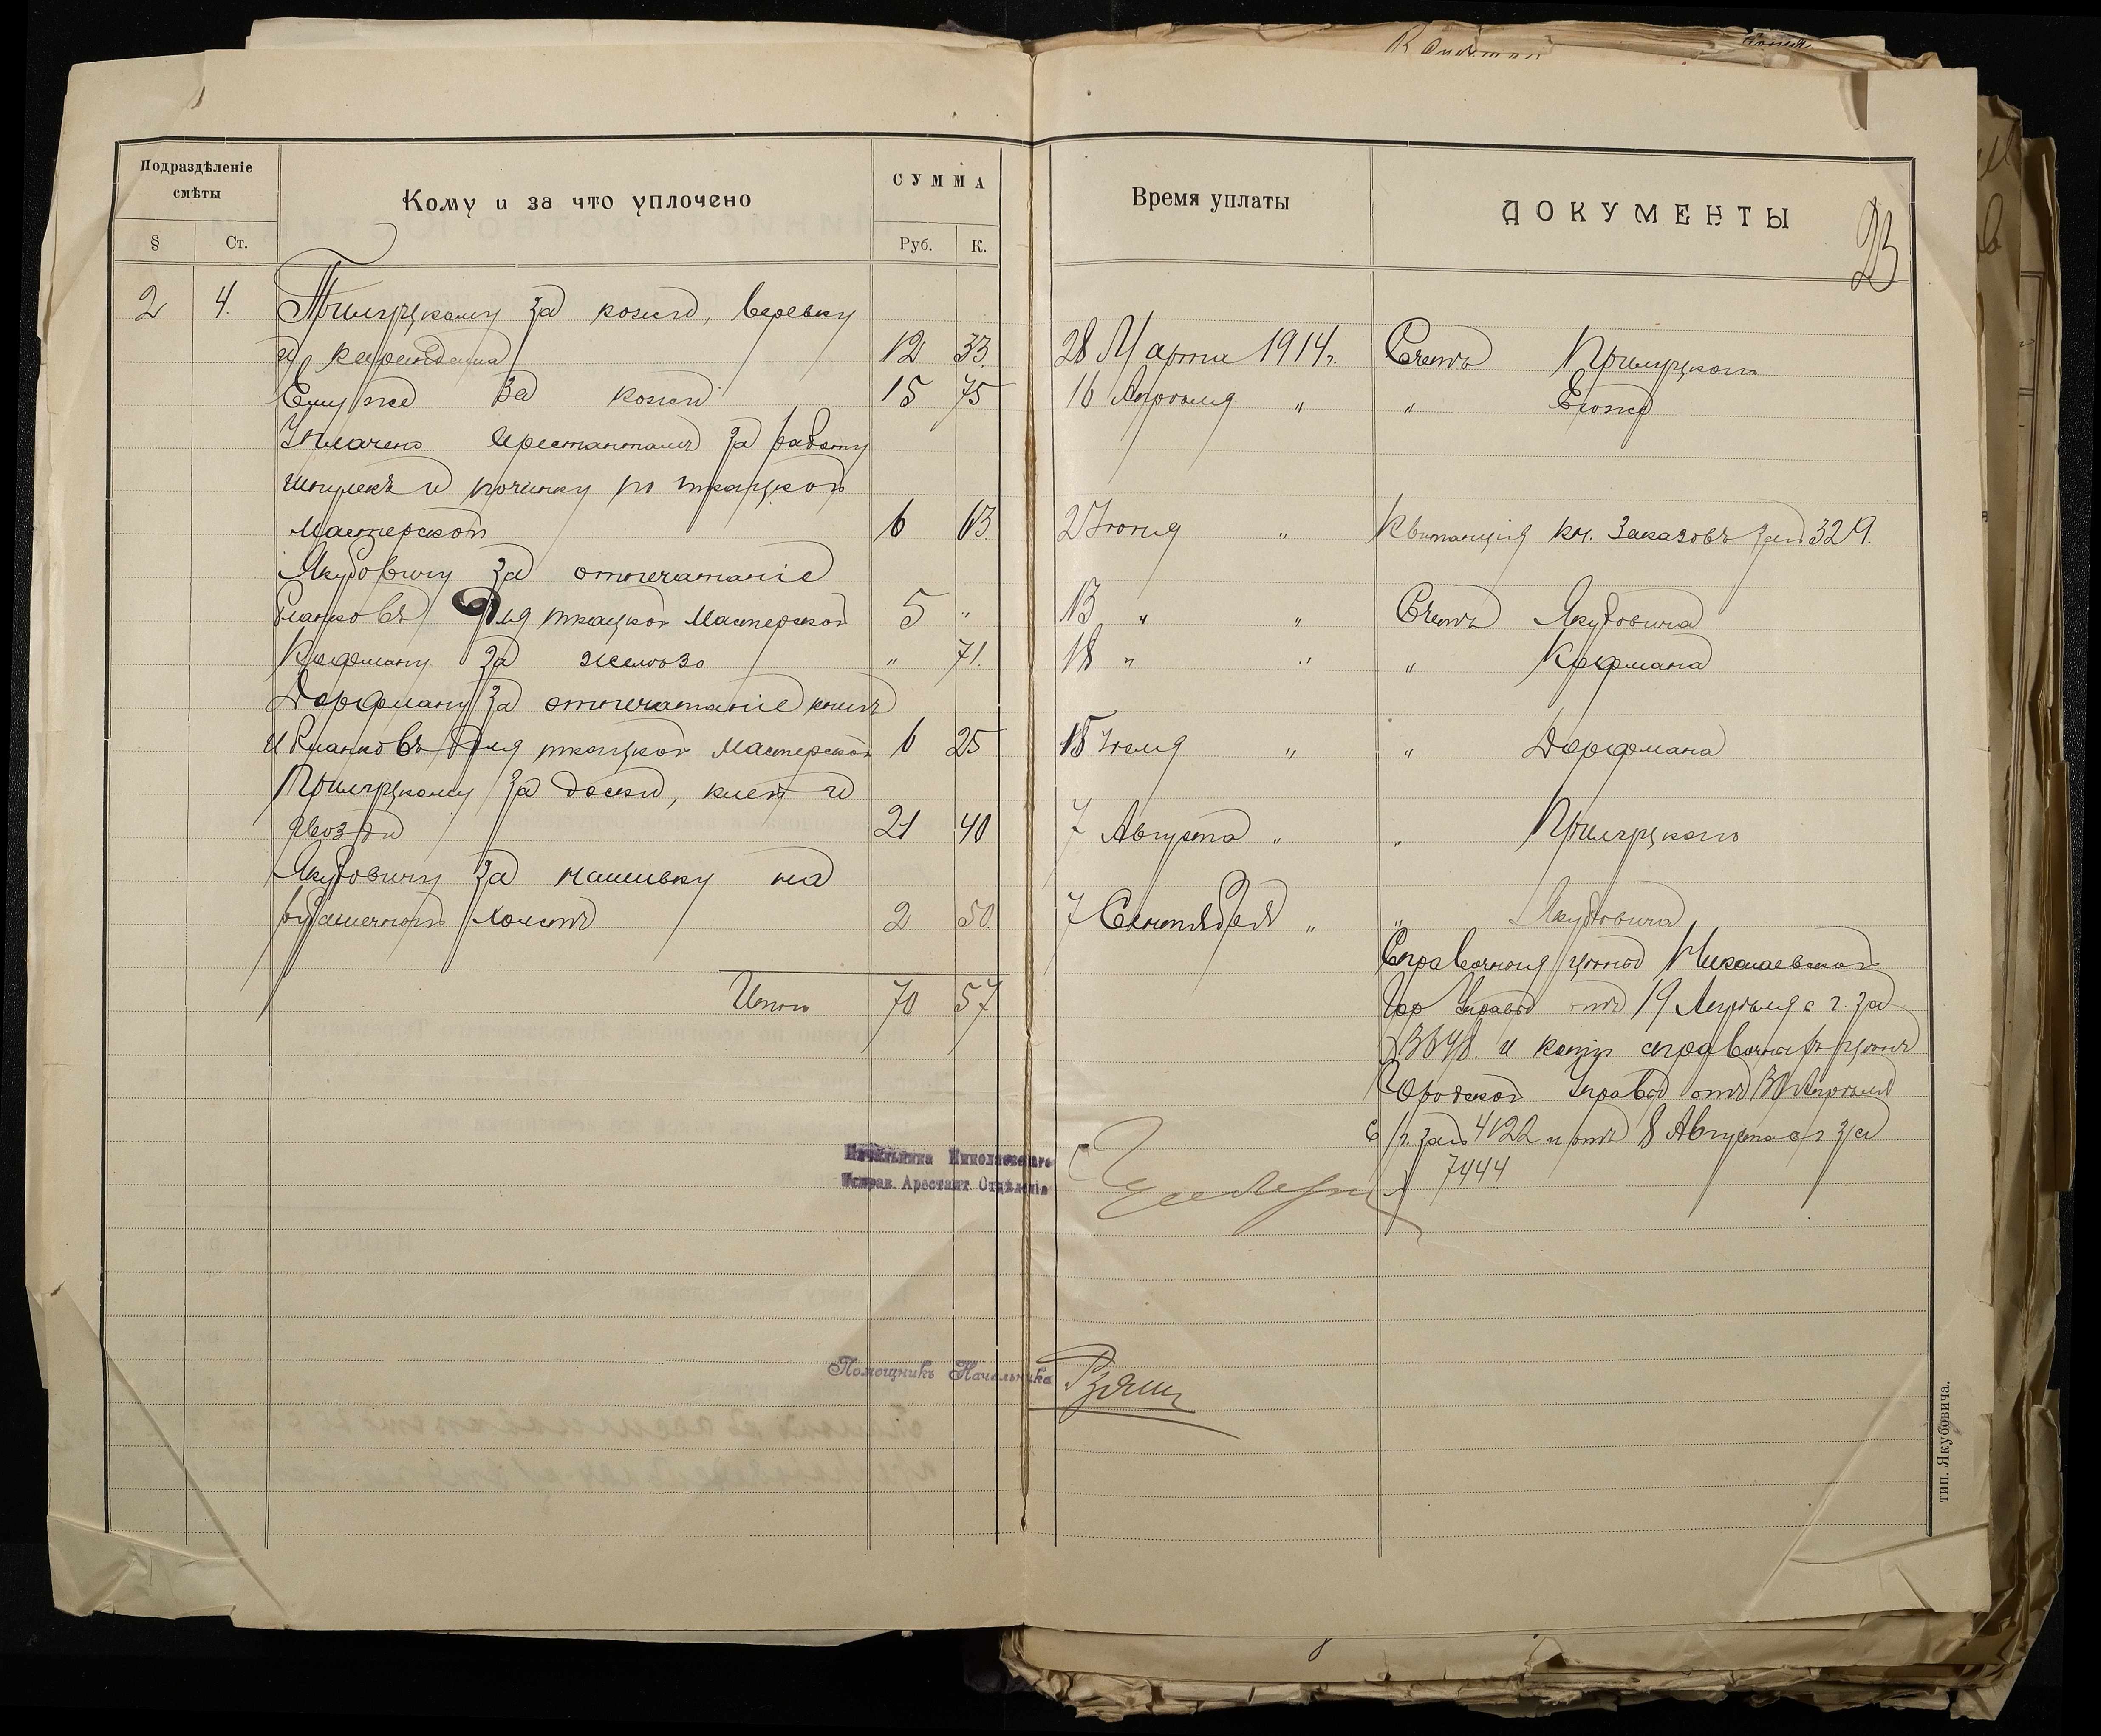 Подраздѣленіе
смѣты
Кому и за что уплочено
СУММА
§
Ст.
Руб.
К.
Время уплаты
ДОКУМЕНТЫ
23
2 4. Прилуцкому за кожи, веревку
и карандаши 12 33. 28 Марта 1914 г. Счетъ Прилуцкого
Ему же за кожи 15 75 16 Апрѣля " " Егоже
Уплачено арестантамъ за работу
шпулекъ и починку по ткацкой
мастерской 6 63 2 Іюня " Квитанція кн. Заказовъ за № 329.
Якубовичу за отпечатаніе
бланковъ для ткацкой мастерской 5 " 13 " " Счетъ Якубовича
Кофману за желѣзо " 71. 18 " " " Кофмана
Дорфману за отпечатаніе книгъ
и бланковъ для ткацкой мастерской 6 25 15 Іюля " " Дорфмана
Прилуцкому за доски, клей и
гвозди 21 40 7 Августа " " Прилуцкого
Якубовичу за нашивку на
холстъ 2 50. 7 Сентября " " Якубовича
Итого 70 57.
Справочныя цѣны Николаевской
Гор Управы отъ 19 Апрѣля с. г. за
и копіи справочныхъ цѣнъ
Городской Управы отъ 30 Апрѣля
с/г. за № 4122 и отъ 8 Августа с г за
№ 7444
Начальника Николаевскаго
Исправ. Арестант Отдѣленія
Помощникъ Начальника
тип. Якубовича.